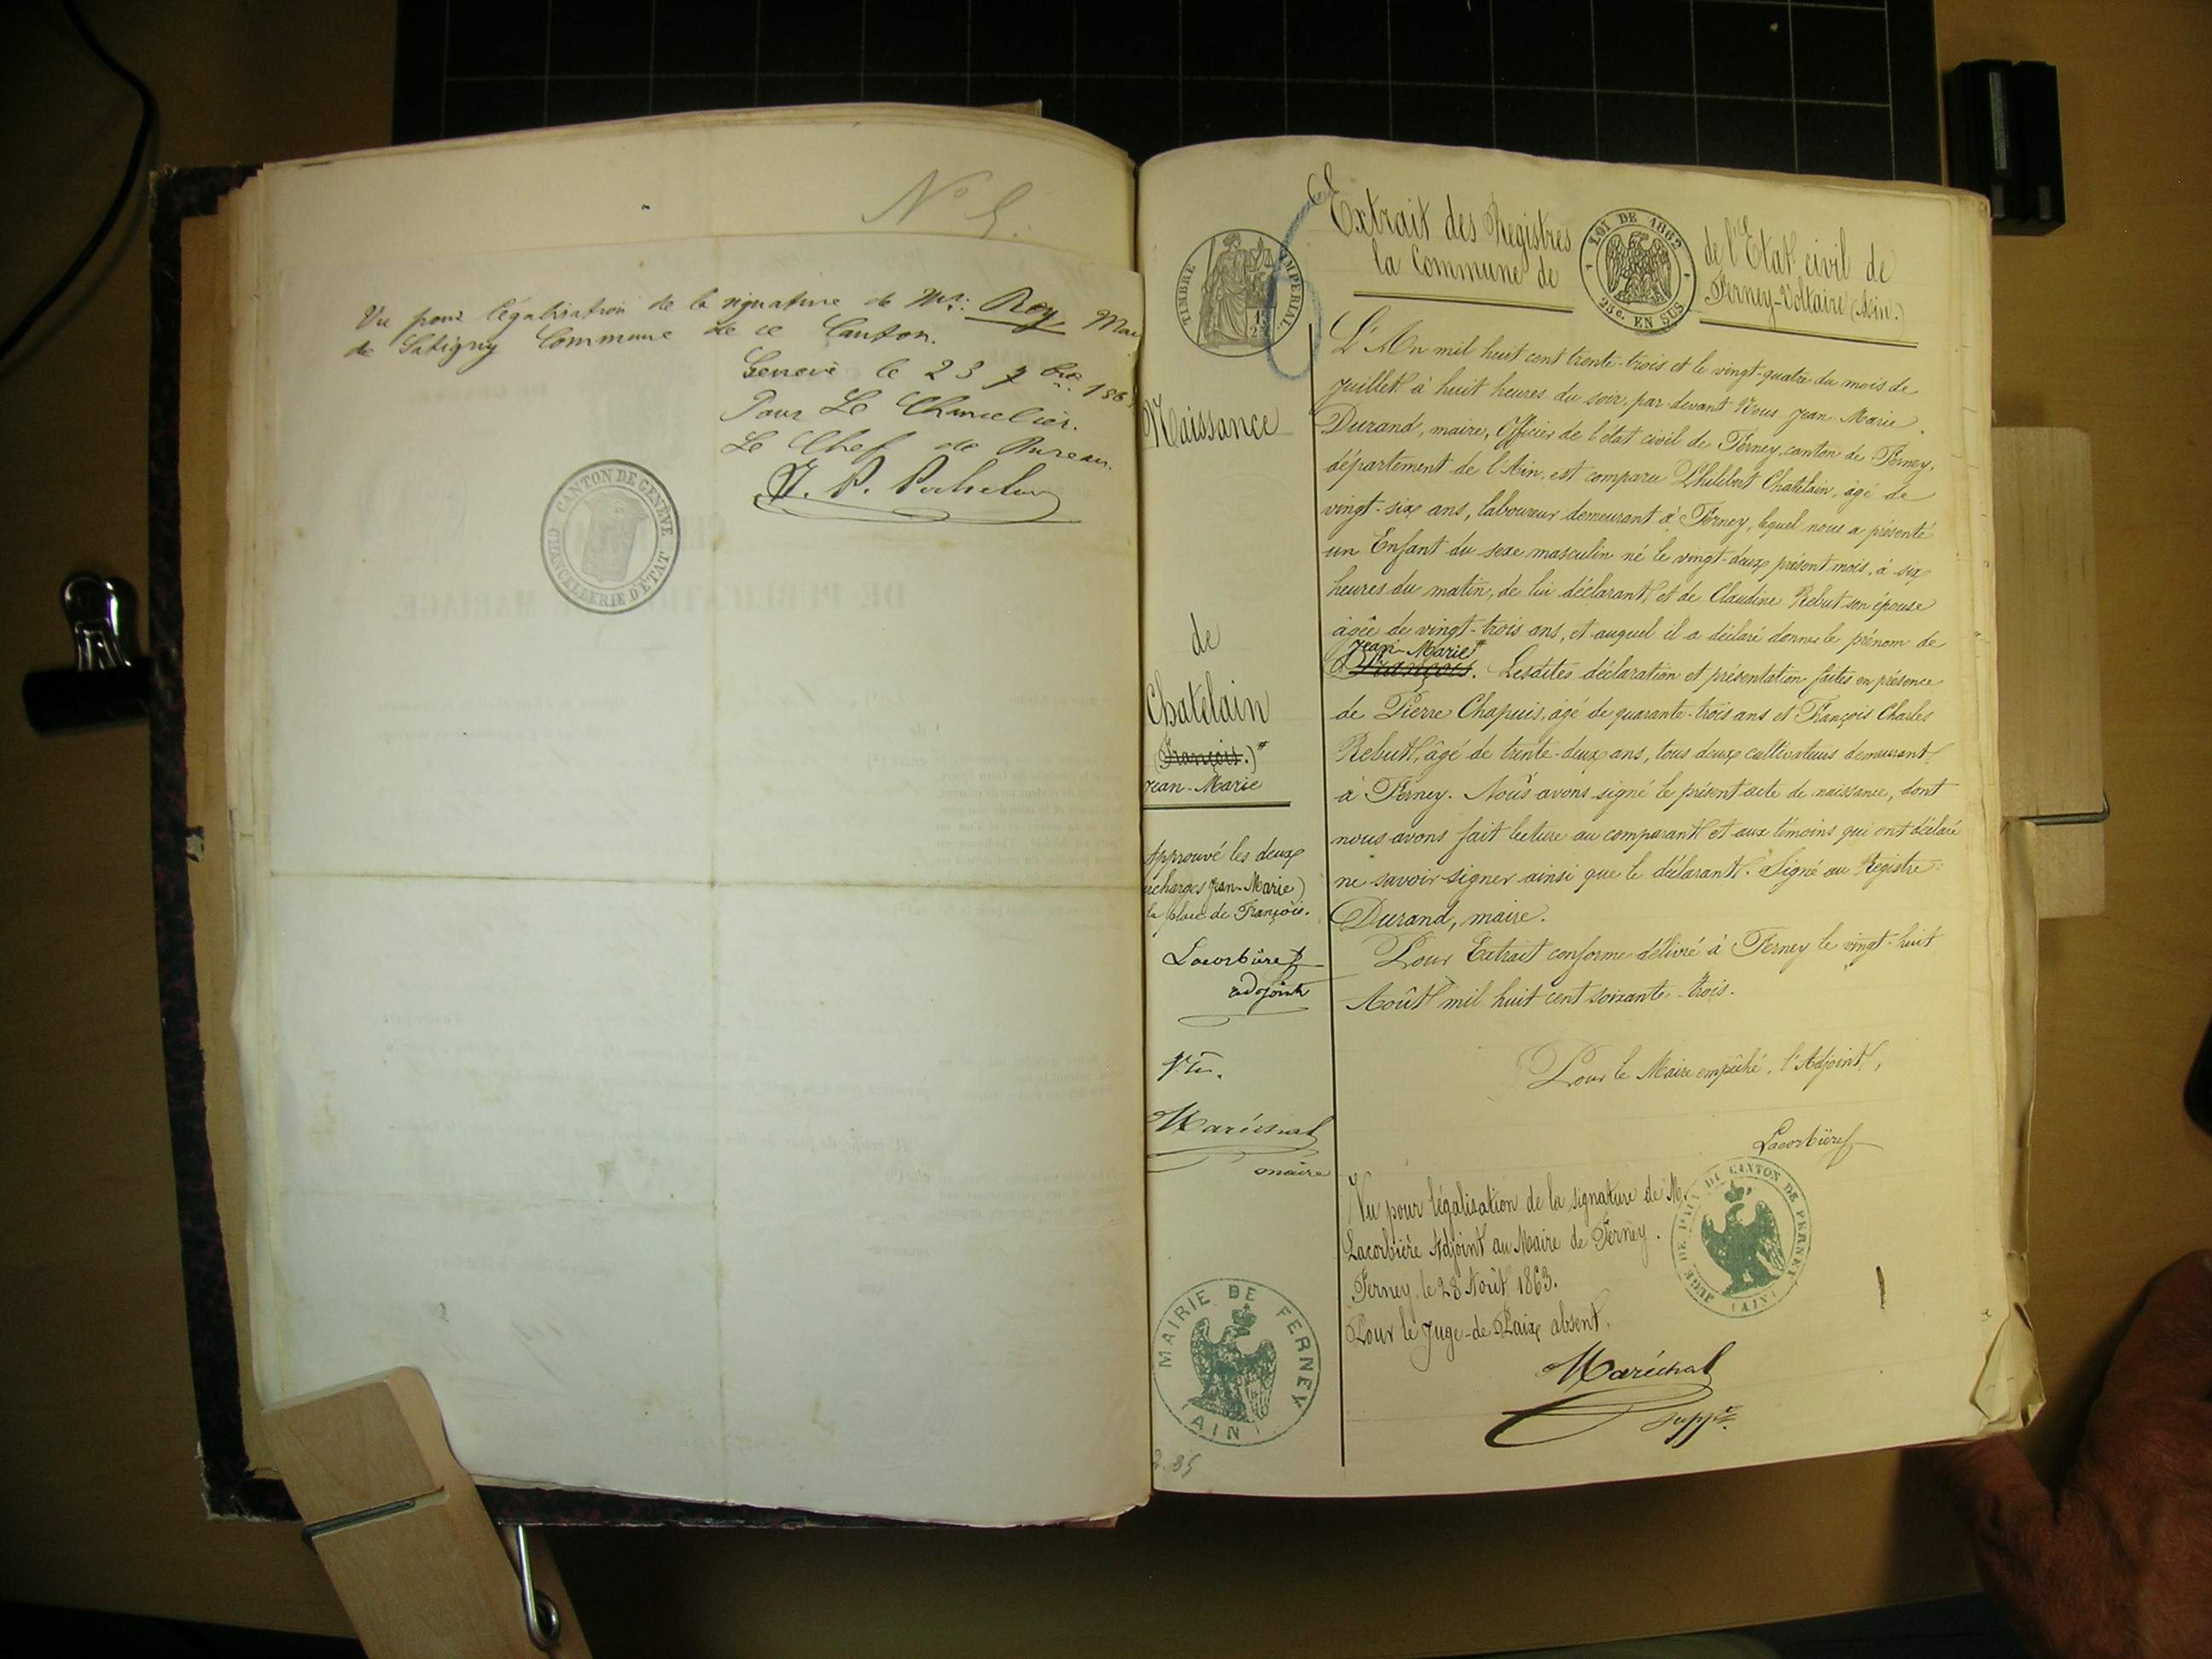 N° 5.
Vu pour légalisation de la signature de Mr: Roy, Mai
de Satigny Commune de ce Canton.
Genève le 23 7bre 186
Pour Le Chancelier.
Le Chef de Bureau.
CANTON DE GENÈVE
CHANCELLERIE D'ETAT
TIMBRE IMPERIAL
Extrait des Registres de l'Etat civil de
la Commune de Ferney-Voltaire (Ain.)
LOI DE 1862
25c. EN SUS
Naissance
de
Chatelain
(François.)#
Jean-Marie
Approuvé les deux
Jean-Marie)
la place de François.
Lacorbière
adjoint
Maréchal
maire
MAIRIE DE FERNEY
(AIN)
L'An mil huit cent trente-trois et le vingt-quatre du mois de
Juillet à huit heures du soir, par-devant Nous Jean-Marie
Durand, maire, Officier de l'état civil de Ferney, canton de Ferney,
département de l'Ain, est comparu Philibert Chatelain, âgé de
vingt-six ans, laboureur demeurant à Ferney, lequel nous a présenté
un Enfant du sexe masculin né le vingt-deux présent mois, à six
heures du matin, de lui déclarant, et de Claudine Rebut son épouse
âgée de vingt-trois ans, et auquel il a déclaré donner le prénom de
Jean-Marie#
François. Lesdites déclaration et présentation faites en présence
de Pierre Chapuis, âgé de quarante-trois ans et François Charles
Rebut, âgé de trente-deux ans, tous deux cultivateurs demeurant
à Ferney. Nous avons signé le présent acte de naissance, dont
nous avons fait lecture au comparant et aux témoins qui ont déclaré
ne savoir signer ainsi que le déclarant. Signé au Registre:
Durand, maire.
Pour Extrait conforme délivré à Ferney le vingt-huit
Août mil huit cent soixante-trois.
Pour le Maire empêché, l'Adjoint,
Lacorbière
Vu pour légalisation de la signature de M.
Lacorbière Adjoint au Maire de Ferney.
Ferney, le 28 Août 1863.
Pour le Juge-de-Paix absent.
Maréchal
suppt.
JUGE DE PAIX DU CANTON DE FERNEY
(AIN)